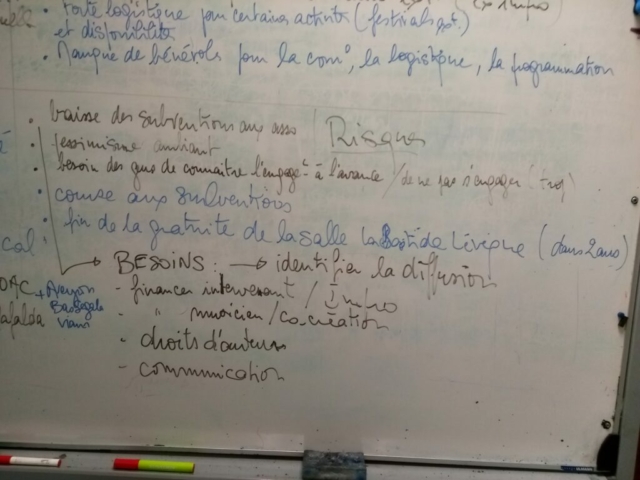 • Forte logistique pour certains activités (festivals
et disponibilités
• Manque de bénévols pour la com°, la logistique, la programmation
• baisse des subventions aux asso
Risques
• pessimisme ambiant
• besoin des gens de connaitre l'engagt à l'avance / de ne pas s'engager
• course aux subventions
• fin de la gratuité de la salle La Bastide L'évêque (dans 2 ans)
cal
→ BESOINS : → identifier la diffusion
OAC + Aveyron
- financer intervenant / Impro
afalda
- " musicien / co-création
- droits d'auteurs
- communication